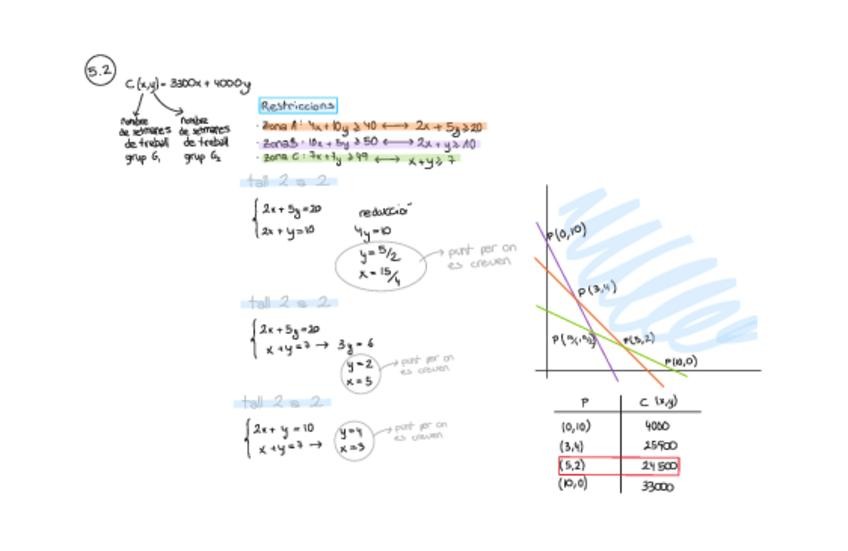 5.2
C(x,y) = 3300x + 4000y
nombre de setmanes de treball grup G₁
nombre de setmanes de treball grup G₂
Restriccions
· Zona A: 4x + 10y ≥ 40 ⟷ 2x + 5y ≥ 20
· Zona B: 10x + 5y ≥ 50 ⟷ 2x + y ≥ 10
· Zona C: 7x + 7y ≥ 49 ⟷ x + y ≥ 7
tall 2 a 2
2x + 5y = 20
2x + y = 10
reducció
4y = 10
y = 5/2
x = 15/4
punt per on
es creuen
tall 2 a 2
2x + 5y = 20
x + y = 7 → 3y = 6
y = 2
x = 5
punt per on
es creuen
tall 2 a 2
2x + y = 10
x + y = 7 →
y = 4
x = 3
punt per on
es creuen
P(0,10)
P(3,4)
P(5,2)
P(10,0)
P C (x,y)
(0,10) 4000
(3,4) 25900
(5,2) 24500
(10,0) 33000